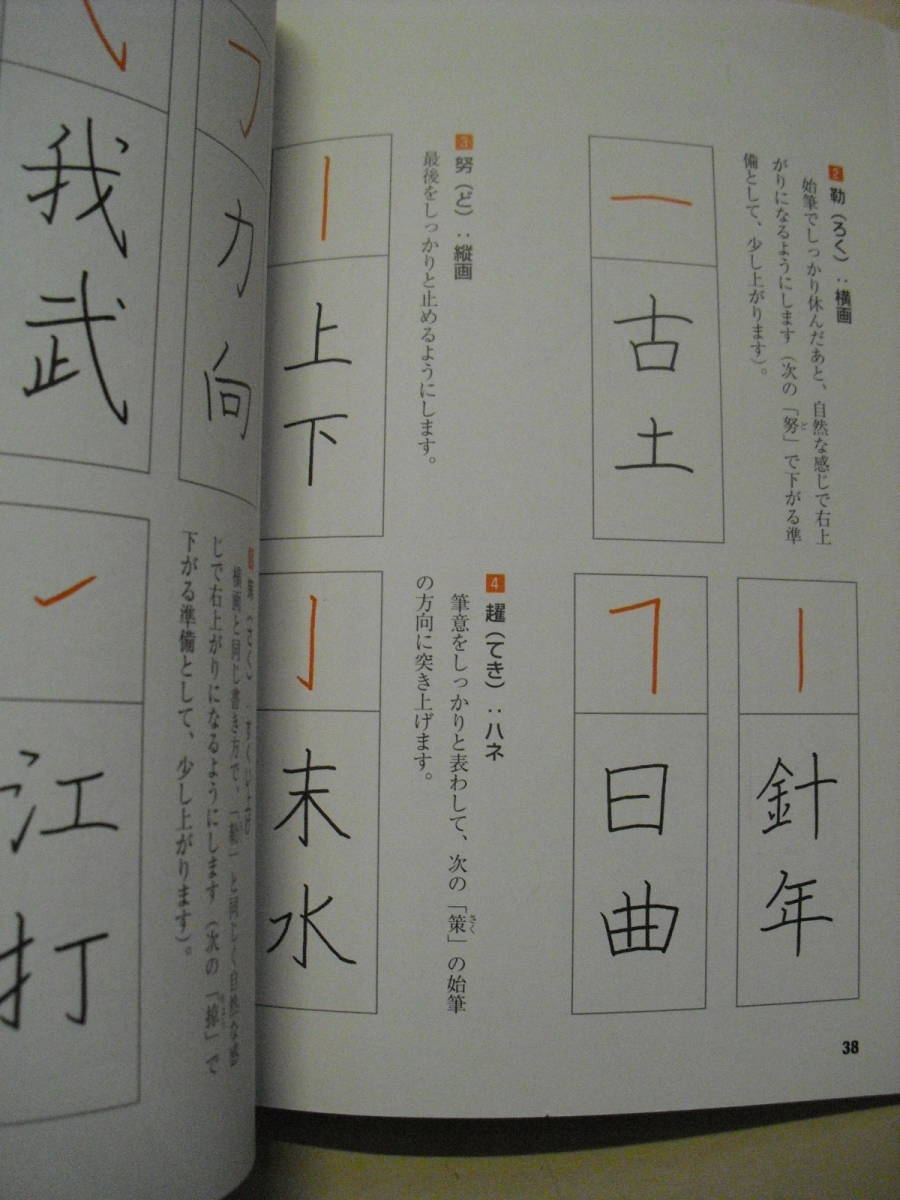 2 勒（ろく）：横画
始筆でしっかり休んだあと、自然な感じで右上
がりになるようにします（次の「努」で下がる準
備として、少し上がります）。
古土
3 努（ど）：縦画
最後をしっかりと止めるようにします。
上下
針年
曰曲
4 趯（てき）：ハネ
筆意をしっかりと表わして、次の「策」の始筆
の方向に突き上げます。
末水
38
力向
我武
横画と同じ書き方で、「勒」と同じく自然な感
じで右上がりになるようにします（次の「掠」で
下がる準備として、少し上がります）。
江打